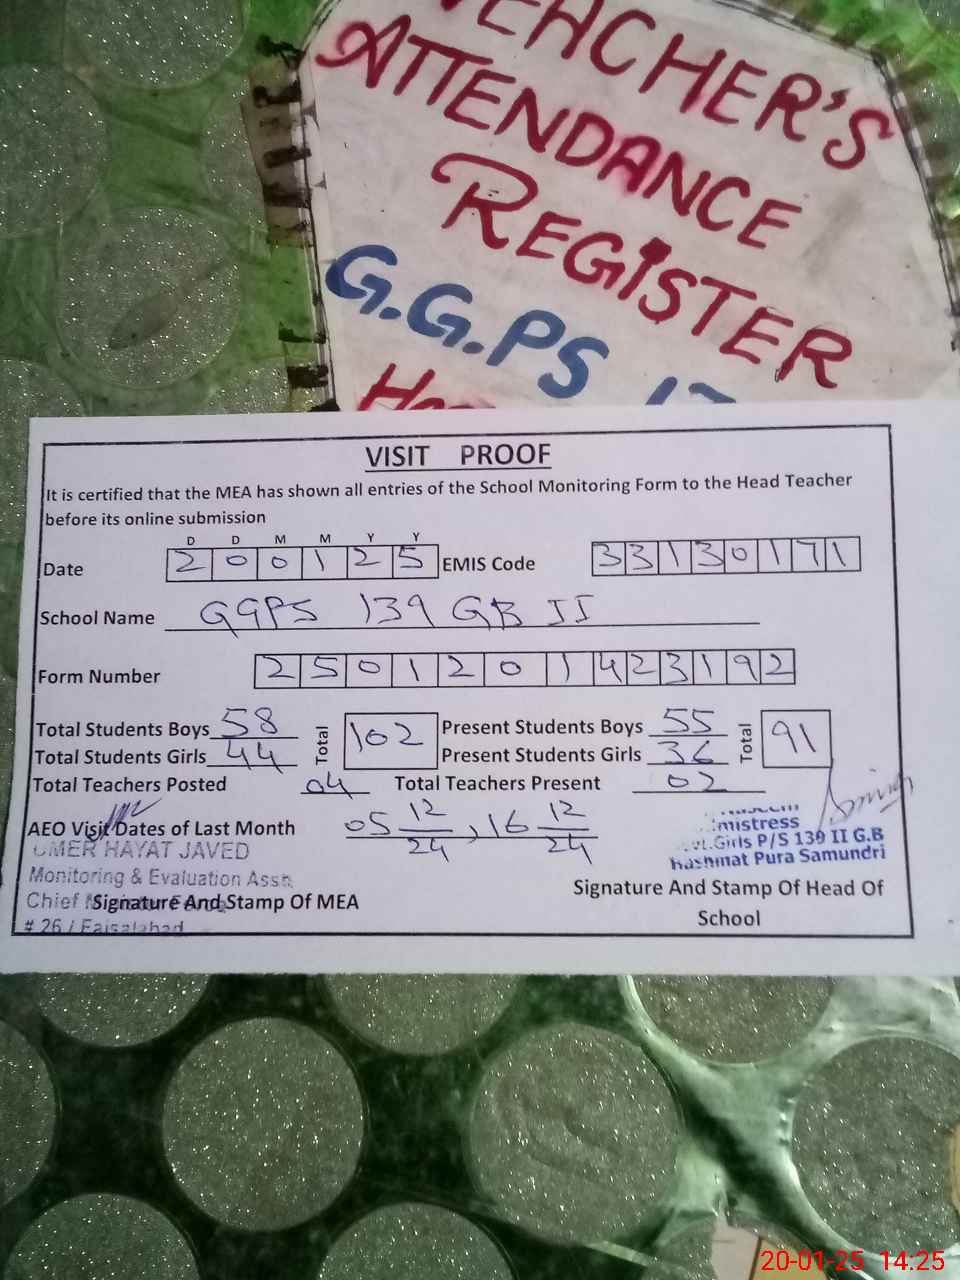 TEACHER'S
ATTENDANCE
REGISTER
G.G.PS
VISIT PROOF
It is certified that the MEA has shown all entries of the School Monitoring Form to the Head Teacher
before its online submission
D D M M Y Y
Date 2 0 0 1 2 5 EMIS Code 3 3 1 3 0 1 7 1
School Name GGPS 139 GB II
Form Number 2 5 0 1 2 0 1 4 2 3 1 9 2
Total Students Boys 58 Total 102 Present Students Boys 55 Total 91
Total Students Girls 44 Present Students Girls 36
Total Teachers Posted 04 Total Teachers Present 02
AEO Visit Dates of Last Month 05 12/24, 16 12/24
mistress
Girls P/S 139 II G.B
Hashmat Pura Samundri
UMER HAYAT JAVED
Monitoring & Evaluation Asst.
Chief
Signature And Stamp Of MEA
# 26 / Faisalabad
Signature And Stamp Of Head Of
School
20-01-25 14:25